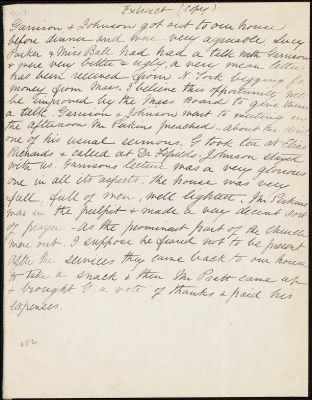 Extract (copy)
Garrison & Johnson got out to our house
before dinner and were very agreeable. Lucy
Parker & Miss Ball had had a talk with Garrison
& were very bitter & ugly, a very mean letter
has been received from N York begging for
money from Mass. I believe this opportunity will
be improved by the Mass. Board to give them
a talk. Garrison & Johnson went to meeting in
the afternoon. Mr Perkins preached about the
one of his usual sermons. G took tea at Elias
Richards & called at Dr Fifields Johnson stayed
with us. Garrisons lecture was a very glorious
one in all its aspects. The house was very
full, full of men, well lighted. Mr Perkins
was in the pulpit & made a very decent sort
of prayer. As the prominent part of the Church
were out. I suppose he feared not to be present
After the services they came back to our house
to take a snack & then Mr Pratt came up
& brought G a vote of thanks & paid his
expenses.